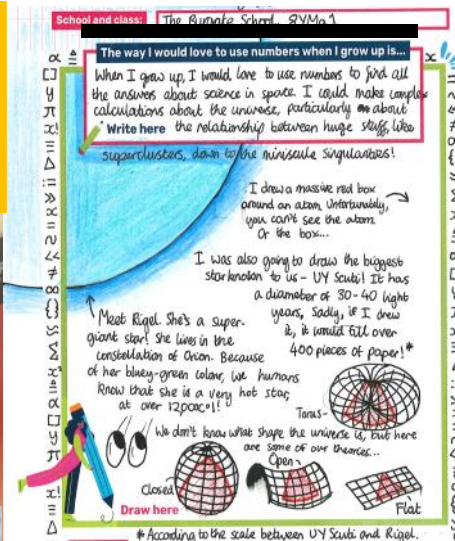 School and class:
The Burgate School, 8YMa1
The way I would love to use numbers when I grow up is...
When I grow up, I would love to use numbers to find all
the answers about science in space. I could make complex
calculations about the universe, particularly about
Write here
the relationship between huge stuff, like
superclusters, down to the miniscule singularities!
I drew a massive red box
around an atom. Unfortunately,
you can't see the atom.
Or the box...
I was also going to draw the biggest
star known to us - UY Scuti! It has
a diameter of 30-40 light
years, Sadly, if I drew
it, it would fill over
400 pieces of paper!*
Meet Rigel. She's a super-
giant star! She lives in the
constellation of Orion. Because
of her bluey-green colour, we humans
know that she is a very hot star,
at over
Torus-
We don't know what shape the universe is, but here
are some of our theories...
Open-
Closed
Flat
Draw here
* According to the scale between UY Scuti and Rigel.